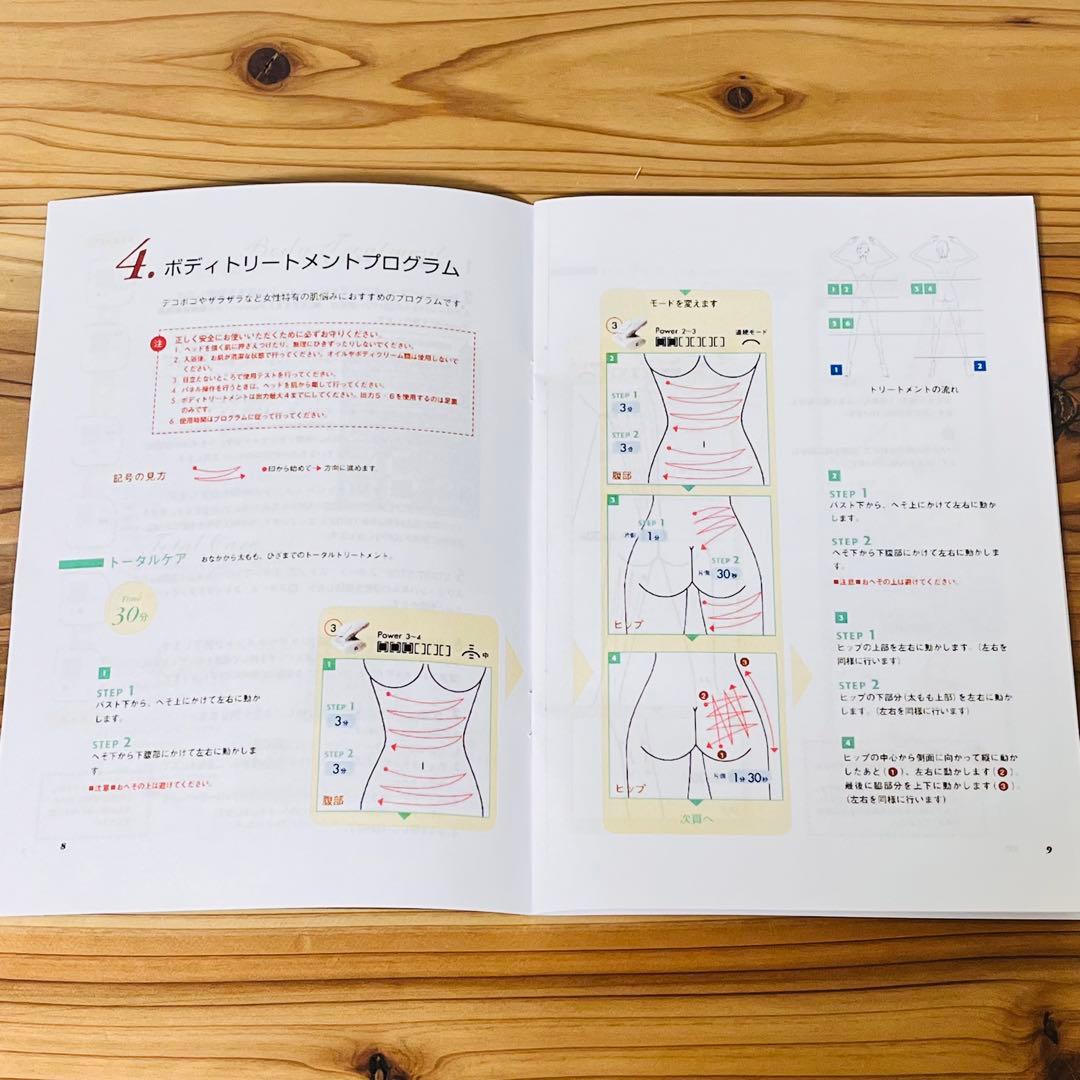 4. ボディトリートメントプログラム
デコボコやザラザラなど女性特有の肌悩みにおすすめのプログラムです。
注
正しく安全にお使いいただくために必ずお守りください。
1. ヘッドを強く肌に押さえつけたり、無理にひきずったりしないでください。
2. 入浴後、お肌が清潔な状態で行ってください。オイルやボディクリーム類は使用しないで
ください。
3. 目立たないところで使用テストを行ってください。
4. パネル操作を行うときは、ヘッドを肌から離して行ってください。
5. ボディトリートメントは出力最大4までにしてください。出力5・6を使用するのは足裏
のみです。
6. 使用時間はプログラムに従って行ってください。
記号の見方
●印から始めて→方向に進めます
トータルケア
おなかから太もも、ひざまでのトータルトリートメント。
Time
30分
1
STEP 1
バスト下から、へそ上にかけて左右に動か
します。
STEP 2
へそ下から下腹部にかけて左右に動かしま
す。
■注意■おへその上は避けてください。
3
Power 3~4
中
1
STEP 1
3分
STEP 2
3分
腹部
8
モードを変えます
3
Power 2~3
連続モード
2
STEP 1
3分
STEP 2
3分
腹部
3
STEP 1
片側 1分
STEP 2
片側 30秒
ヒップ
4
3
2
1
片側 1分30秒
ヒップ
次頁へ
1 2
3 4
5 6
1
2
トリートメントの流れ
2
STEP 1
バスト下から、へそ上にかけて左右に動か
します。
STEP 2
へそ下から下腹部にかけて左右に動かしま
す。
■注意■おへその上は避けてください。
3
STEP 1
ヒップの上部を左右に動かします。(左右を
同様に行います)
STEP 2
ヒップの下部分(太もも上部)を左右に動か
します。(左右を同様に行います)
4
ヒップの中心から側面に向かって縦に動か
したあと(1)、左右に動かします(2)。
最後に脇部分を上下に動かします(3)。
(左右を同様に行います)
9